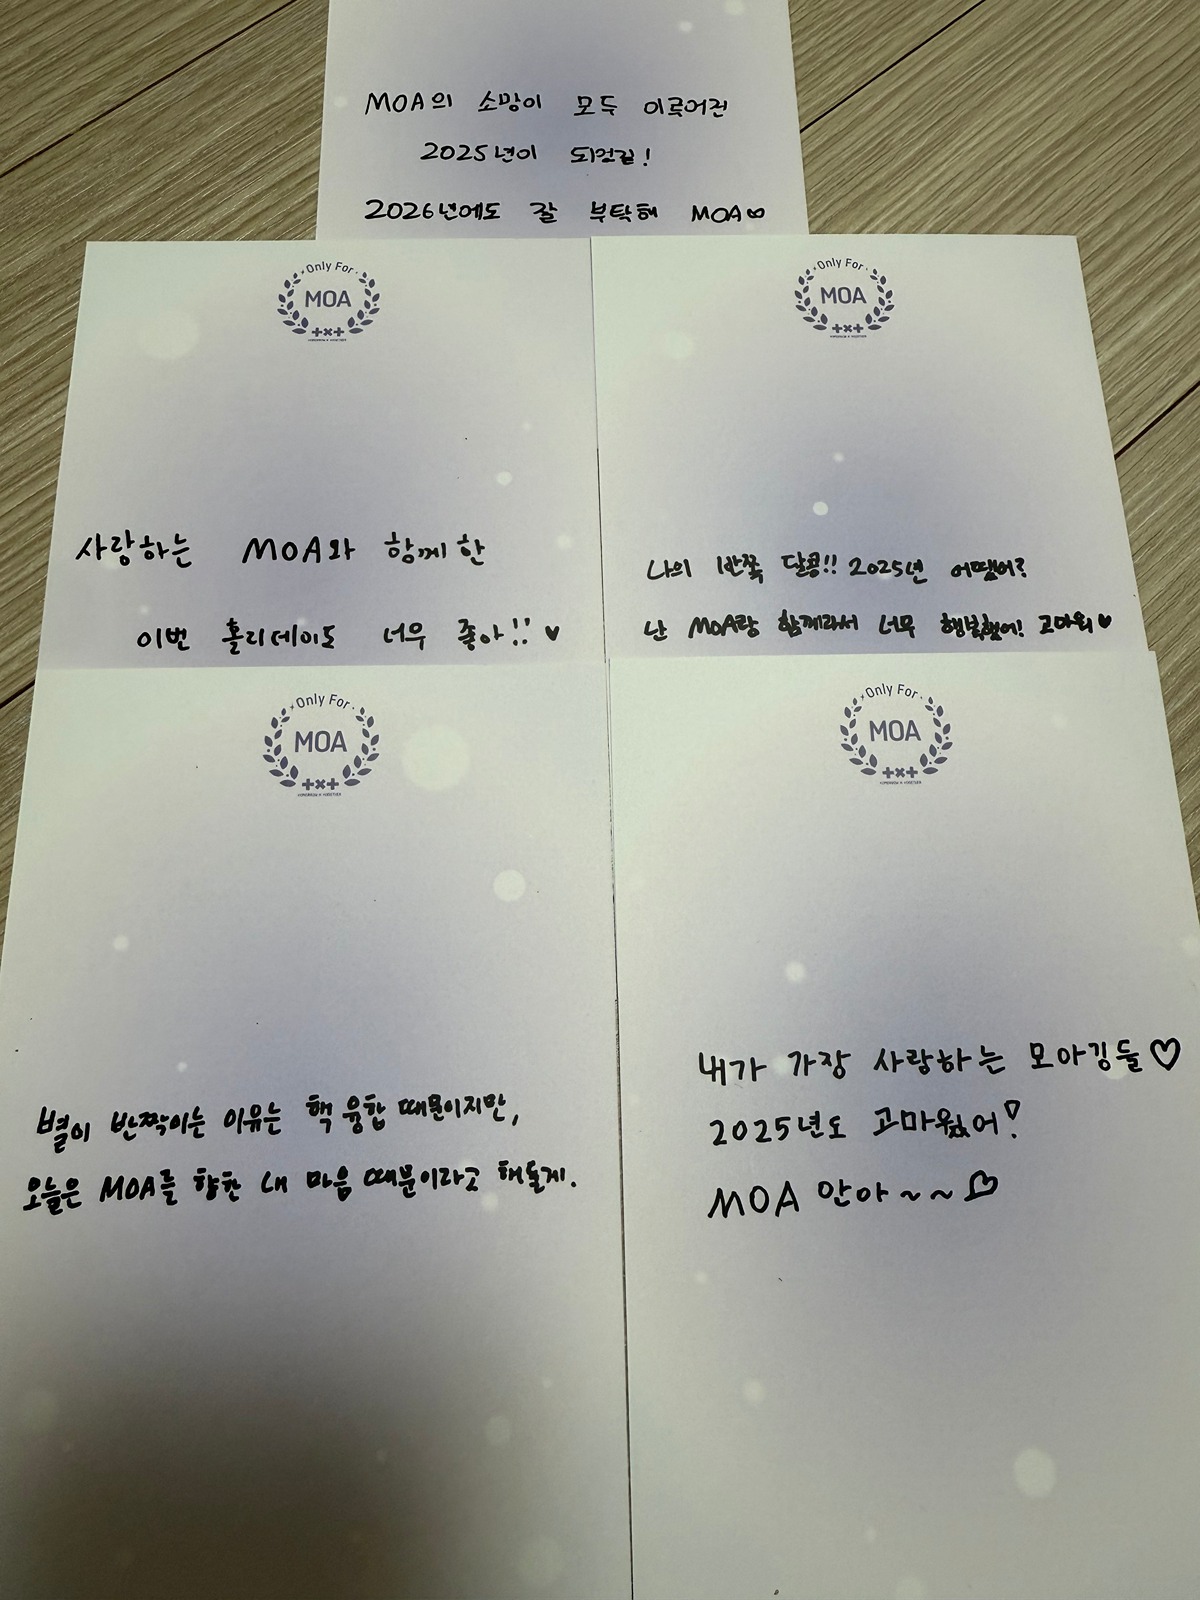 MOA의 소망이 모두 이루어진
2025년이 되었길!
2026년에도 잘 부탁해 MOA♡
Only For
MOA
TOMORROW X TOGETHER
사랑하는 MOA와 함께한
이번 홀리데이도 너무 좋아!! ♥
Only For
MOA
TOMORROW X TOGETHER
나의 반쪽 달콩!! 2025년 어땠어?
난 MOA랑 함께라서 너무 행복했어! 고마워♥
Only For
MOA
TOMORROW X TOGETHER
별이 반짝이는 이유는 핵융합 때문이지만,
오늘은 MOA를 향한 내 마음 때문이라고 해둘게.
Only For
MOA
TOMORROW X TOGETHER
내가 가장 사랑하는 모아깅들♡
2025년도 고마웠어!
MOA 안아~~♡